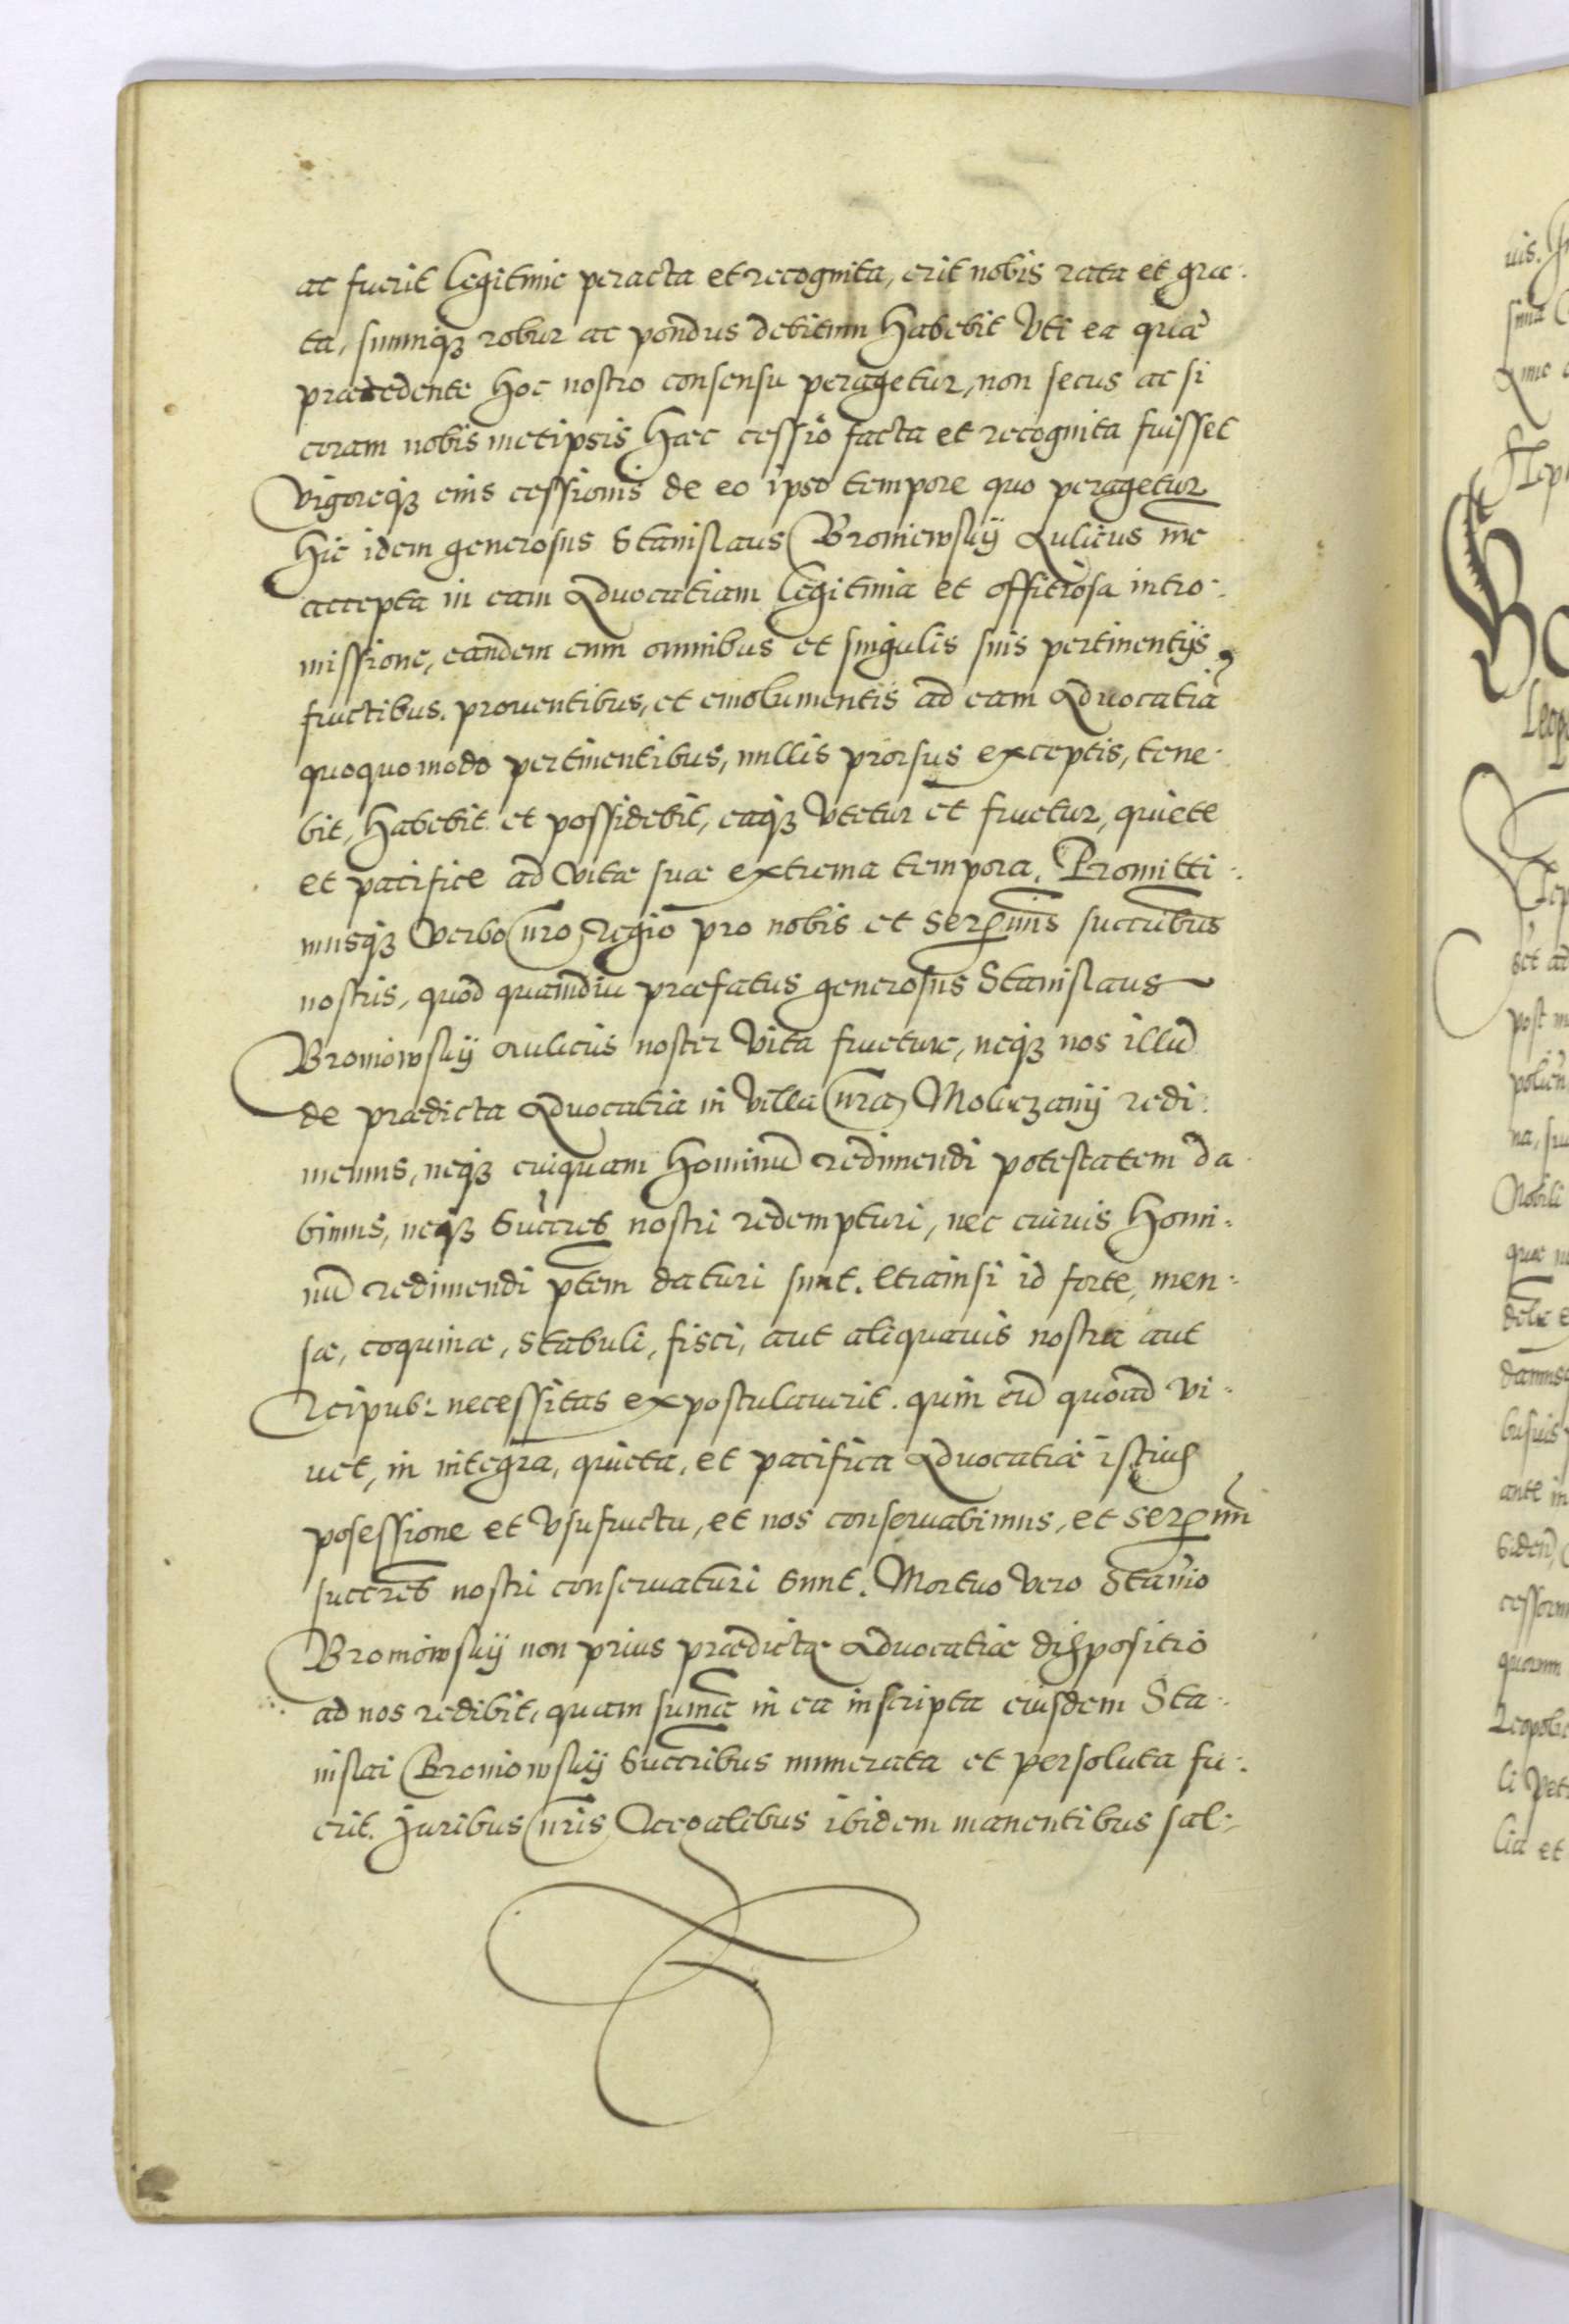 ac fuerit legitime peracta et recognita, erit nobis rata et gra-
ta, suumqꝫ robur ac pondus debitum habebit Vti ea quae
praecedente hoc nostro consensu peragetur, non secus ac si
coram nobis metipsis haec cessio facta et recognita fuisset
Vigoreqꝫ eius cessionis de eo ipso tempore quo peragetur
Hic idem generosus Stanislaus Broniewskij Aulicus
accepta in eam Advocatiam legitima et offitiosa intro-
missione, eandem cum omnibus et singulis suis pertinentijs,
fructibus, prouentibus, et emolumentis ad eam Advocatiā
quoquomodo pertinentibus, nullis prorsus exceptis, tene-
bit, habebit et possidebit, eaqꝫ Vtetur et fruetur, quiete
et pacifice ad vitae suae extrema tempora. Promitti-
musqꝫ Verbo nr̄o Regio pro nobis et Serꝑmīs succub̄us
nostris, quod quamdiu praefatus generosus Stanislaus
Broniowskij Aulicus noster Vita fruetur, neqꝫ nos illud
de praedicta Advocatia in Villa nr̄a Moliczanij redi-
memus, neqꝫ cuiquam hominū redimendi potestatem da
bimus, neqꝫ Succr̄es nostri redempturi, nec cuiuis homi-
nū redimendi ptēm daturi sunt. Etiamsi id forte, men-
sae, coquinae, stabuli, fisci, aut aliquauis nostra aut
Reipub: necessitas expostulauerit. quin eū quoad vi-
uet, in integra, quieta, et pacifica Advocatiae istius
posessione et Vsufructu, et nos conseruabimus, et Serꝑmī
succr̄es nostri conseruaturi sunt. Mortuo Vero Stan̄io
Broniowskij non prius praedictae Advocatiae dispositio
ad nos redibit, quam sum̄a in ea inscripta eiusdem Sta-
nislai Broniowskij Succr̄ibus numerata et persoluta fu-
erit. Juribus nr̄is Regalibus ibidem manentibus sal-